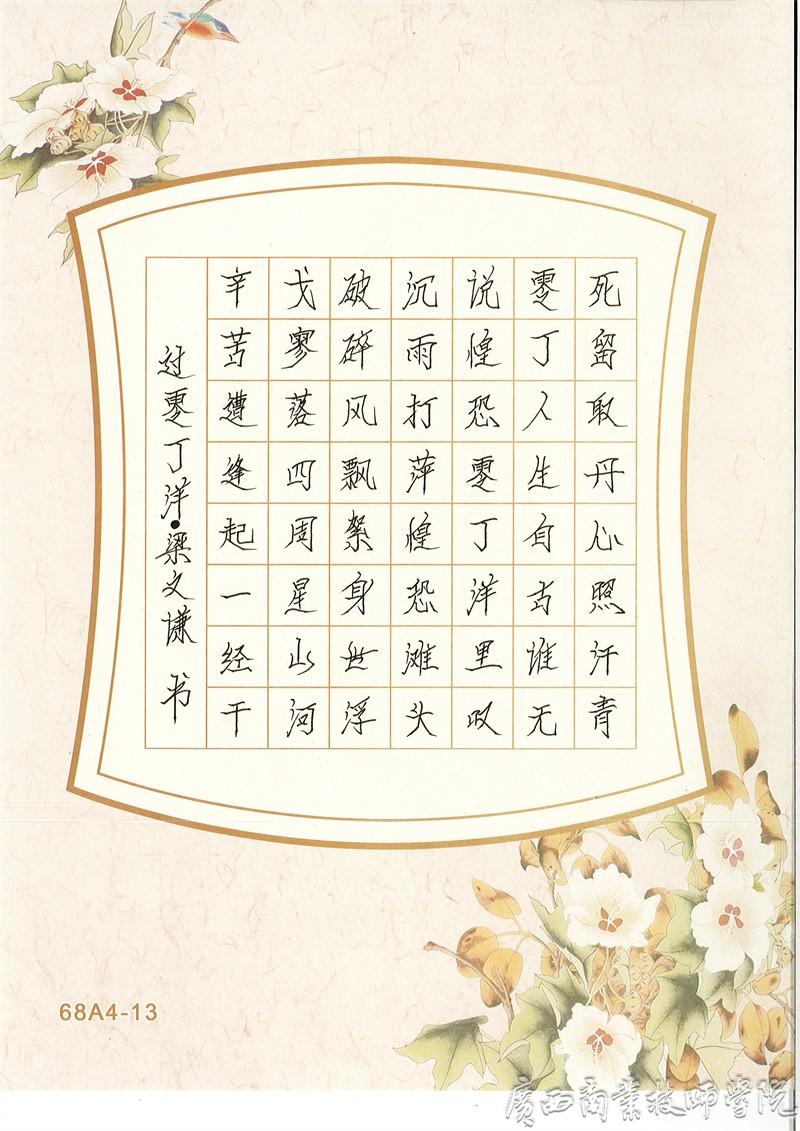 过零丁洋•梁文谦 书
辛苦遭逢起一经干
戈寥落四周星山河
破碎风飘絮身世浮
沉雨打萍惶恐滩头
说惶恐零丁洋里叹
零丁人生自古谁无
死留取丹心照汗青
68A4-13
廣西商業技师學院